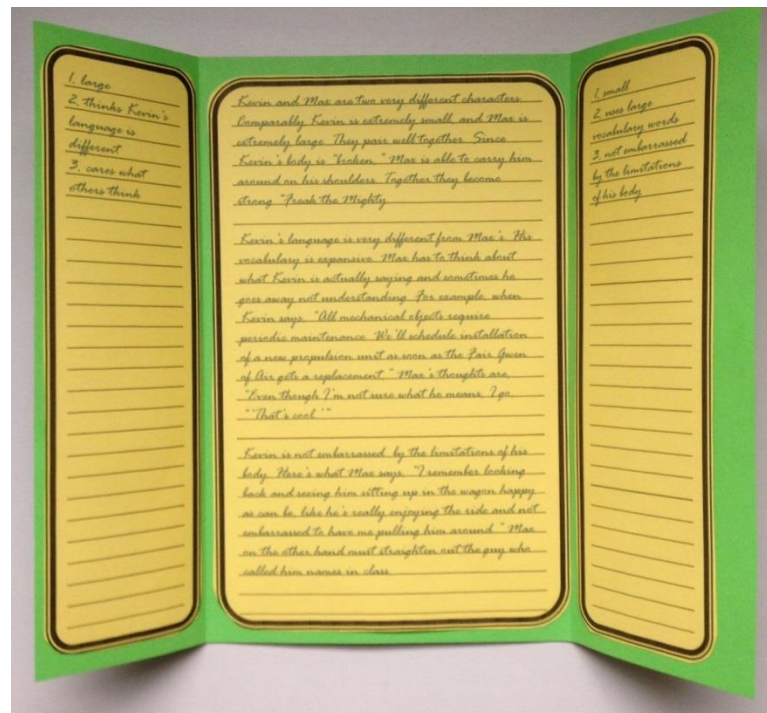 1. large
2. thinks Kevin's
language is
different
3. cares what
others think
Kevin and Max are two very different characters.
Comparably Kevin is extremely small, and Max is
extremely large. They pair well together. Since
Kevin's body is "broken," Max is able to carry him
around on his shoulders. Together they become
strong "Freak the Mighty.
Kevin's language is very different from Max's. His
vocabulary is expansive. Max has to think about
what Kevin is actually saying and sometimes he
goes away not understanding. For example, when
Kevin says, "All mechanical objects require
periodic maintenance. We'll schedule installation
of a new propulsion unit as soon as the Fair Gwen
of Air gets a replacement," Max's thoughts are,
"Even though I'm not sure what he means, I go,
"'That's cool.'"
Kevin is not embarrassed by the limitations of his
body. Here's what Max says, "I remember looking
back and seeing him sitting up in the wagon happy
as can be, like he's really enjoying the ride and not
embarrassed to have me pulling him around." Max
on the other hand must straighten out the guy who
called him names in class.
1. small
2. uses large
vocabulary words
3. not embarrassed
by the limitations
of his body